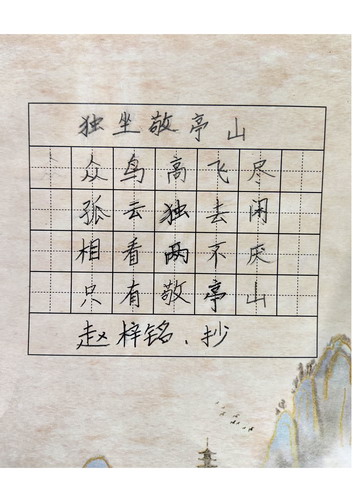 独坐敬亭山
众鸟高飞尽
孤云独去闲
相看两不厌
只有敬亭山
赵梓铭、抄